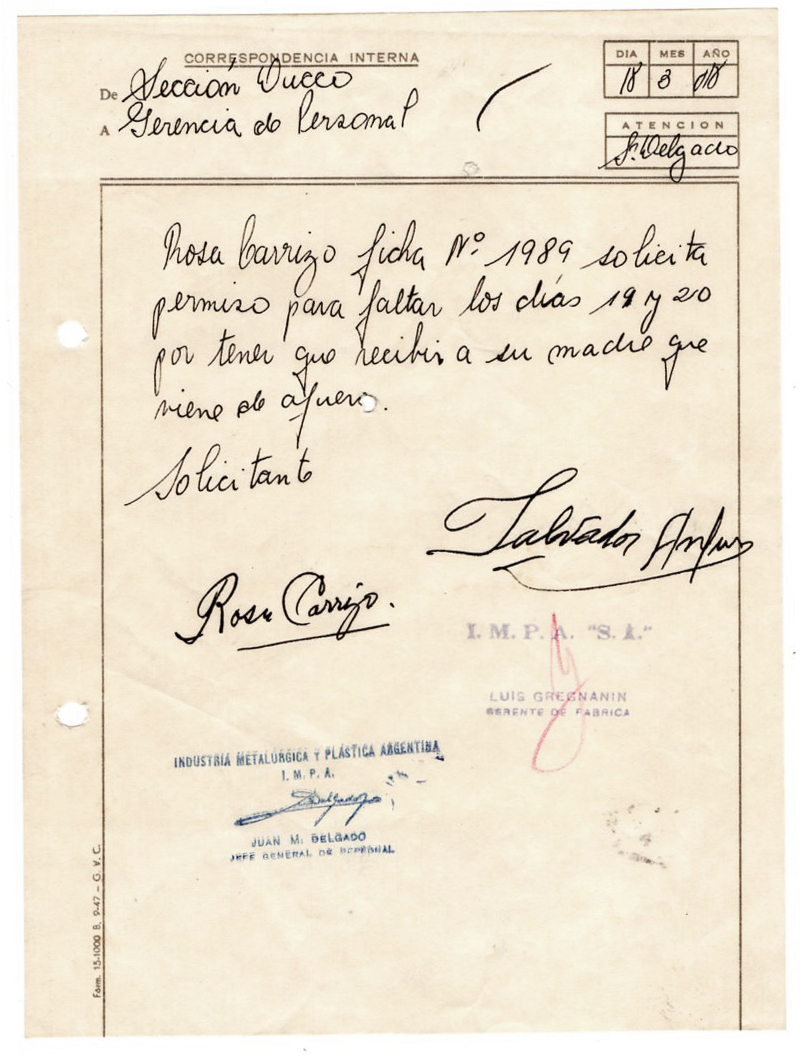 CORRESPONDENCIA INTERNA
DIA MES AÑO
18 3
De Sección Ducco
A Gerencia de Personal
ATENCION
Sr. Delgado
Rosa Carrizo ficha Nº 1989 solicita
permiso para faltar los días 19 y 20
por tener que recibir a su madre que
viene de afuera.
Solicitante
Salvador
Rosa Carrizo.
I. M. P. A. "S. A."
LUIS GREGNANIN
GERENTE DE FABRICA
INDUSTRIA METALÚRGICA Y PLÁSTICA ARGENTINA
I. M. P. A.
JUAN M. DELGADO
JEFE GENERAL DE PERSONAL
Form. 15-1000 B. 9-47 – G. V. C.